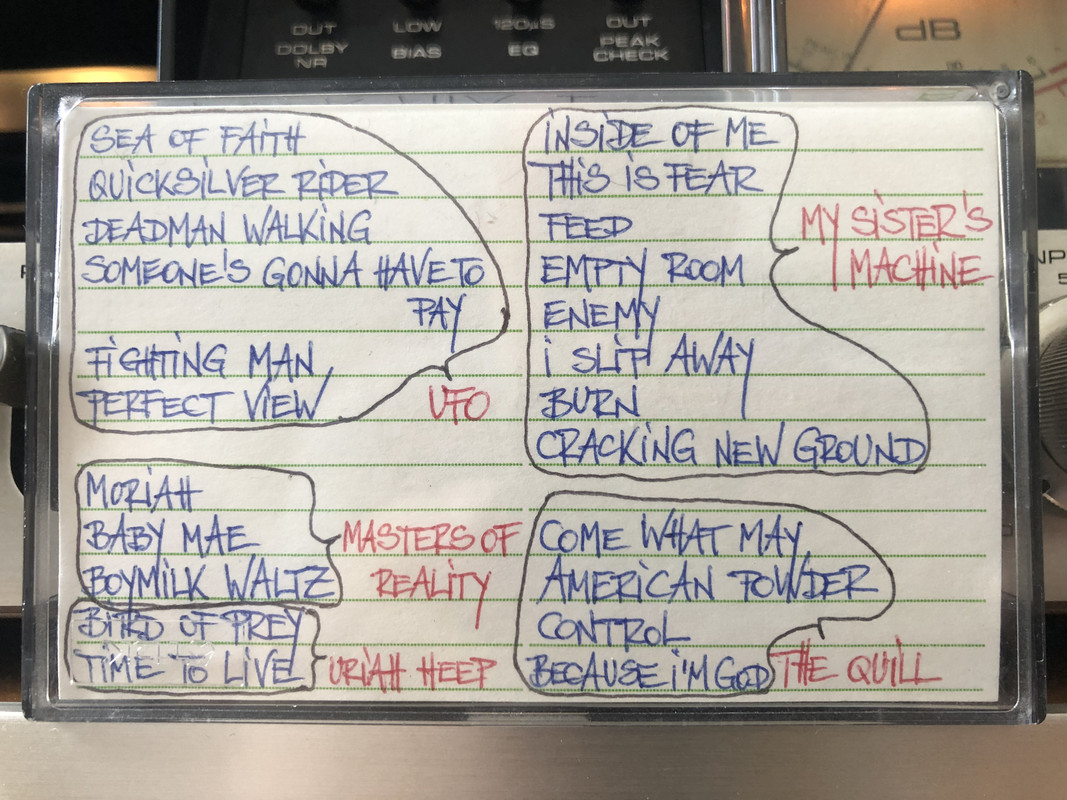 OUT
DOLBY
NR
LOW
BIAS
120µS
EQ
OUT
PEAK
CHECK
dB
SEA OF FAITH
QUICKSILVER RIDER
DEADMAN WALKING
SOMEONE'S GONNA HAVE TO
PAY
FIGHTING MAN
PERFECT VIEW
UFO
MORIAH
BABY MAE
BOYMILK WALTZ
MASTERS OF
REALITY
BIRD OF PREY
TIME TO LIVE
URIAH HEEP
INSIDE OF ME
THIS IS FEAR
FEED
EMPTY ROOM
ENEMY
I SLIP AWAY
BURN
CRACKING NEW GROUND
MY SISTER'S
MACHINE
COME WHAT MAY
AMERICAN POWDER
CONTROL
BECAUSE I'M GOD
THE QUILL